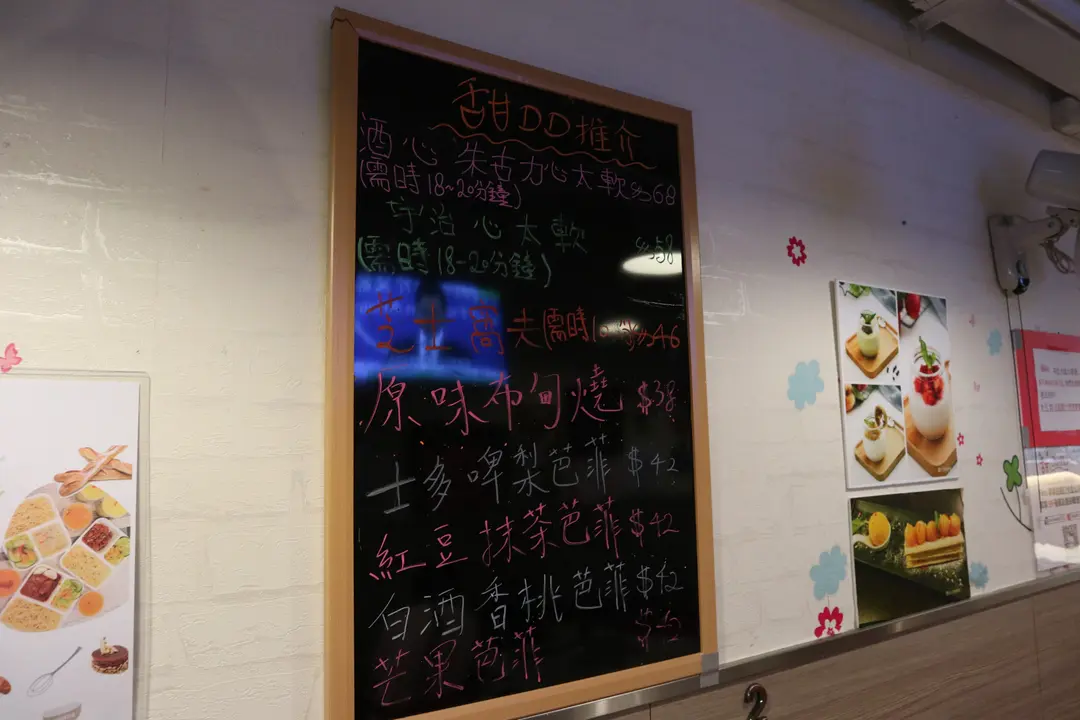 甜DD推介
酒心朱古力心太軟 $68
(需時18~20分鐘)
宇治心太軟 $58
(需時18-20分鐘)
芝士窩夫(需時10 $46
原味布甸燒 $38
士多啤梨芭菲 $42
紅豆抹茶芭菲 $42
白酒香桃芭菲 $42
芒果芭菲 $42
2